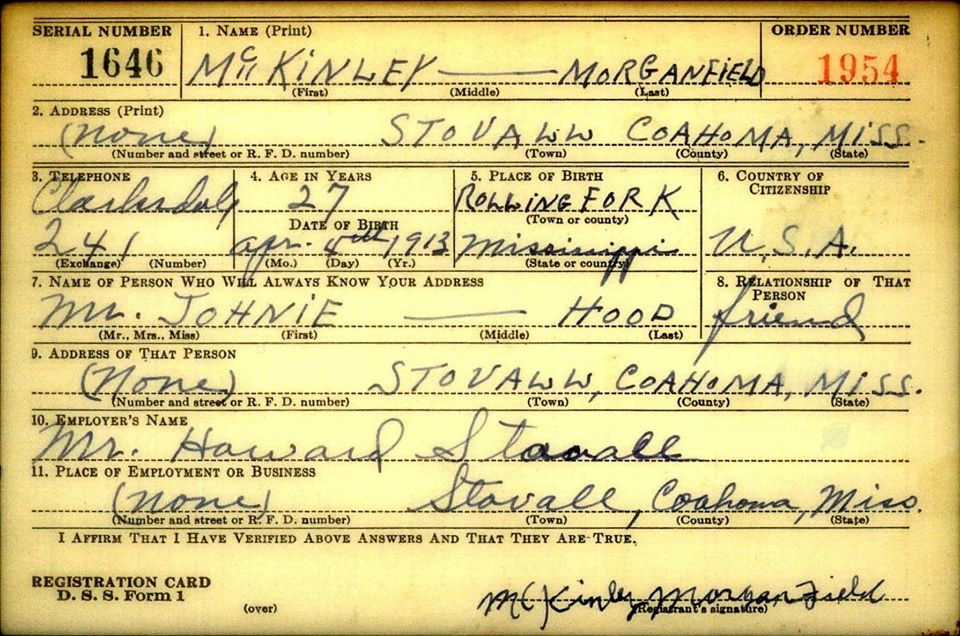 SERIAL NUMBER 1. NAME (Print) ORDER NUMBER
1646 McKINLEY — MORGANFIELD 1954
(First) (Middle) (Last)
2. ADDRESS (Print)
(none) STOVALL COAHOMA, MISS.
(Number and street or R. F. D. number) (Town) (County) (State)
3. TELEPHONE 4. AGE IN YEARS 5. PLACE OF BIRTH 6. COUNTRY OF CITIZENSHIP
Clarksdale 27 ROLLING FORK
DATE OF BIRTH (Town or county)
241 apr. 4th 1913 Mississippi U.S.A.
(Exchange) (Number) (Mo.) (Day) (Yr.) (State or country)
7. NAME OF PERSON WHO WILL ALWAYS KNOW YOUR ADDRESS 8. RELATIONSHIP OF THAT PERSON
Mr. JOHNIE — HOOD friend
(Mr., Mrs., Miss) (First) (Middle) (Last)
9. ADDRESS OF THAT PERSON
(None) STOVALL, COAHOMA, MISS.
(Number and street or R. F. D. number) (Town) (County) (State)
10. EMPLOYER'S NAME
Mr. Howard Stovall
11. PLACE OF EMPLOYMENT OR BUSINESS
(None) Stovall, Coahoma, Miss.
(Number and street or R. F. D. number) (Town) (County) (State)
I AFFIRM THAT I HAVE VERIFIED ABOVE ANSWERS AND THAT THEY ARE TRUE.
REGISTRATION CARD
D. S. S. Form 1 McKinley Morganfield
(over) (Registrant's signature)